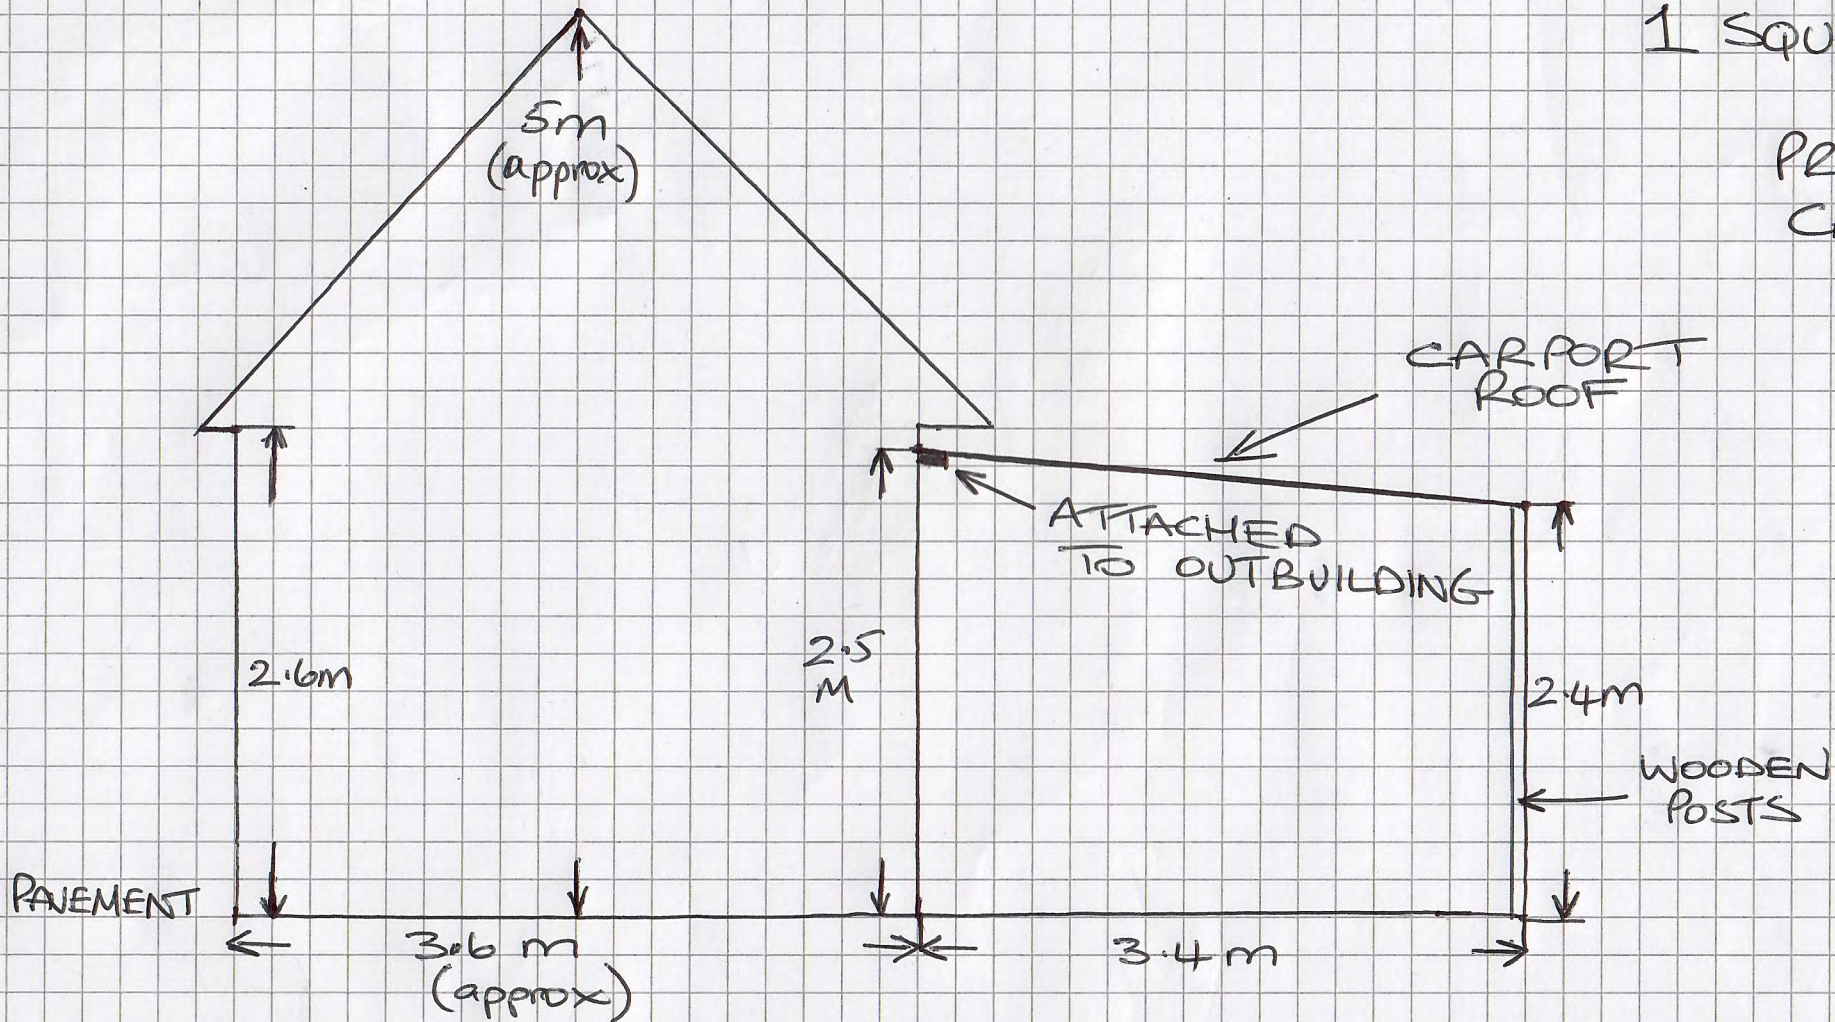 1 SQU
PR
C
5m
(approx)
CARPORT
ROOF
ATTACHED
TO OUTBUILDING
2.6m
2.5
M
2.4m
WOODEN
POSTS
PAVEMENT
3.6 m
(approx)
3.4 m